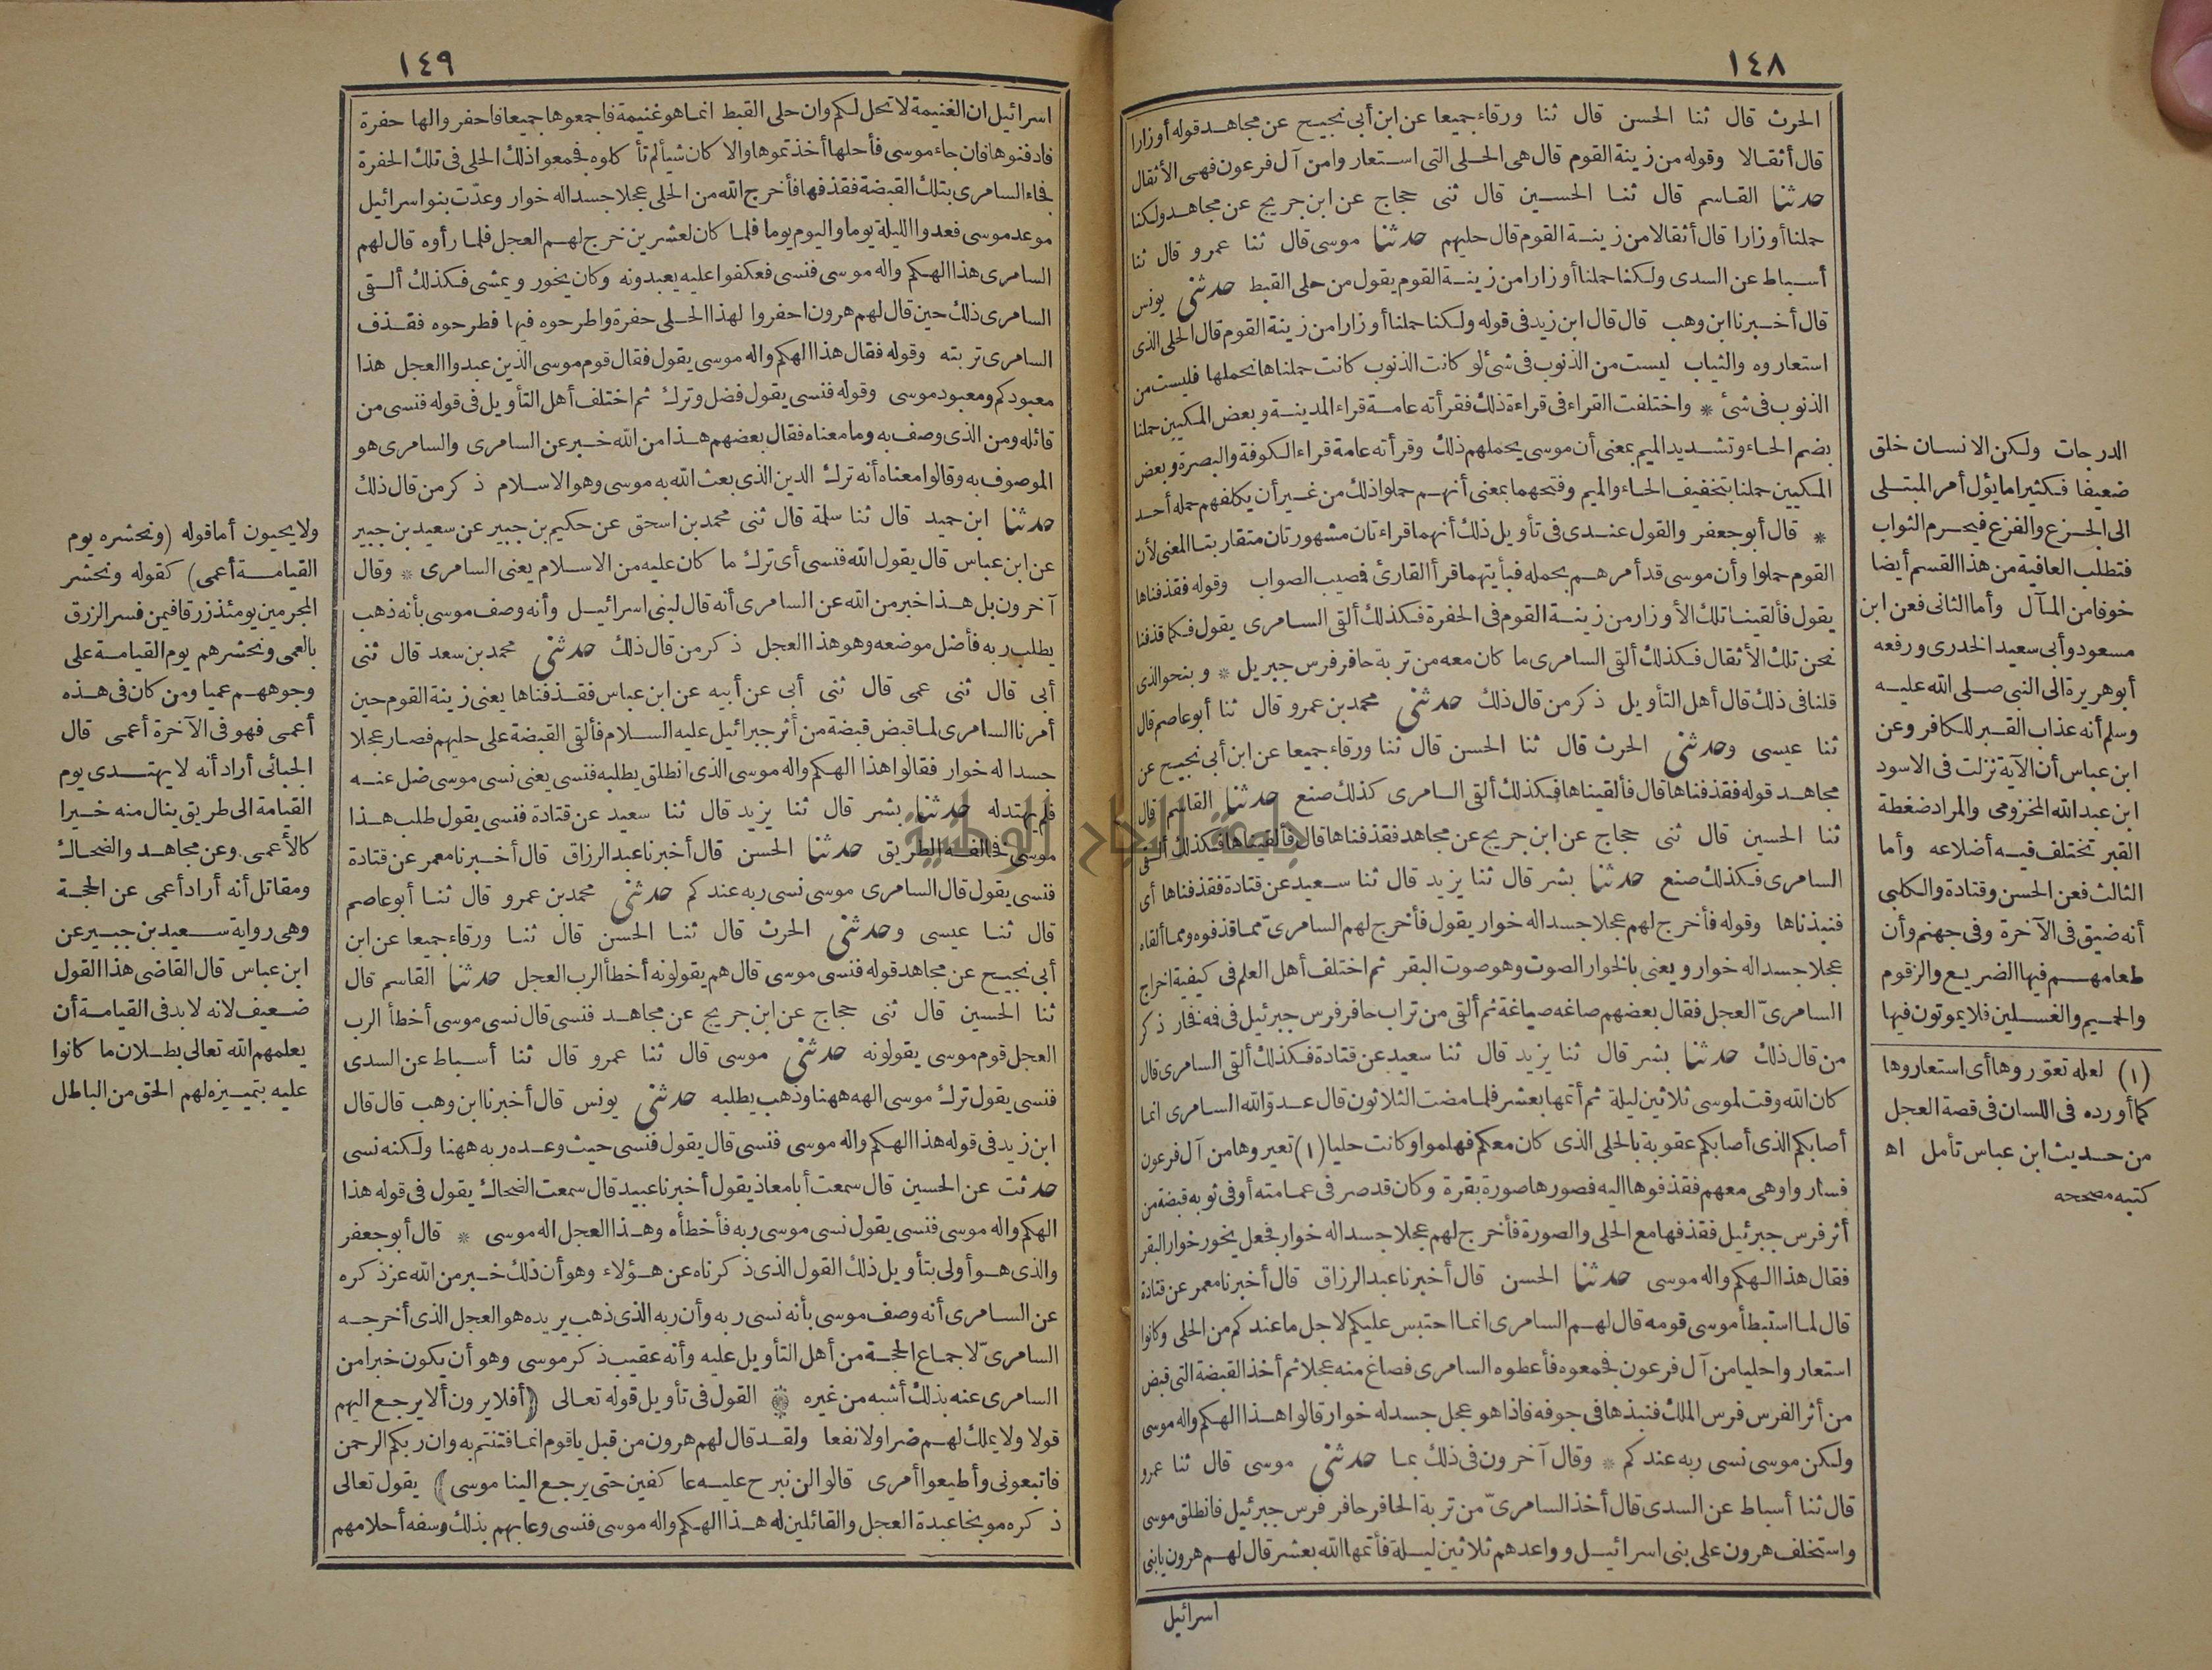 ١٤٨
الحرث قال ثنا الحسن قال ثنا ورقاء جميعا عن ابن أبى نجيح عن مجاهد قوله أوزارا
قال أثقالا وقوله من زينة القوم قال هى الحلى التى استعاروا من آل فرعون فهى الأثقال
حدثنا القاسم قال ثنا الحسين قال ثنى حجاج عن ابن جريج عن مجاهد ولكنا
حملنا أوزارا قال أثقالا من زينة القوم قال حليهم حدثنا موسى قال ثنا عمرو قال ثنا
أسباط عن السدى ولكنا حملنا أوزارا من زينة القوم يقول من حلى القبط حدثنى يونس
قال أخبرنا ابن وهب قال قال ابن زيد فى قوله ولكنا حملنا أوزارا من زينة القوم قال الحلى الذى
استعاروه والثياب ليست من الذنوب فى شئ لو كانت الذنوب كانت حملناها نحملها فليست من
الذنوب فى شئ * واختلفت القراء فى قراءة ذلك فقرأته عامة قراء المدينة وبعض المكيين حملنا
بضم الحاء وتشديد الميم بمعنى أن موسى يحملهم ذلك وقرأته عامة قراء الكوفة والبصرة وبعض
المكيين حملنا بتخفيف الحاء والميم وفتحهما بمعنى أنهم حملوا ذلك من غير أن يكلفهم حمله أحد
* قال أبو جعفر والقول عندى فى تأويل ذلك أنهما قراءتان مشهورتان متقاربتا المعنى لأن
القوم حملوا وأن موسى قد أمرهم بحمله فبأيتهما قرأ القارئ فصيب الصواب وقوله فقذفناها
يقول فألقينا تلك الأوزار من زينة القوم فى الحفرة فكذلك ألقى السامرى يقول فكما قذفنا
نحن تلك الأثقال فكذلك ألقى السامرى ما كان معه من تربة حافر فرس جبريل * وبنحو الذى
قلنا فى ذلك قال أهل التأويل ذكر من قال ذلك حدثنى محمد بن عمرو قال ثنا أبو عاصم قال
ثنا عيسى وحدثنى الحرث قال ثنا الحسن قال ثنا ورقاء جميعا عن ابن أبى نجيح عن
مجاهد قوله فقذفناها قال فألقيناها فكذلك ألقى السامرى كذلك صنع حدثنا القاسم قال
ثنا الحسين قال ثنى حجاج عن ابن جريج عن مجاهد فقذفناها قال فألقيناها فكذلك ألقى
السامرى فكذلك صنع حدثنا بشر قال ثنا يزيد قال ثنا سعيد عن قتادة فقذفناها أى
فنبذناها وقوله فأخرج لهم عجلا جسدا له خوار يقول فأخرج لهم السامرىّ مما قذفوه ومما ألقاه
عجلا جسدا له خوار ويعنى بالخوار الصوت وهو صوت البقر ثم اختلف أهل العلم فى كيفية اخراج
السامرىّ العجل فقال بعضهم صاغه صياغة ثم ألقى من تراب حافر فرس جبرئيل فى فه فخار ذكر
من قال ذلك حدثنا بشر قال ثنا يزيد قال ثنا سعيد عن قتادة فكذلك ألقى السامرى قال
كان الله وقت لموسى ثلاثين ليلة ثم أتمها بعشر فلما مضت الثلاثون قال عدوّ الله السامرى انما
أصابكم الذى أصابكم عقوبة بالحلى الذى كان معكم فهلموا وكانت حليا (١) تعيروها من آل فرعون
فساروا وهى معهم فقذفوها اليه فصورها صورة بقرة وكان قد صر فى عمامته أو فى ثوبه قبضة من
أثر فرس جبرئيل فقذفها مع الحلى والصورة فأخرج لهم عجلا جسدا له خوار فجعل يخور خوار البقر
فقال هذا الهكم واله موسى حدثنا الحسن قال أخبرنا عبد الرزاق قال أخبرنا معمر عن قتادة
قال لما استبطأ موسى قومه قال لهم السامرى انما احتبس عليكم لاجل ما عندكم من الحلى وكانوا
استعاروا حليا من آل فرعون فجمعوه فأعطوه السامرى فصاغ منه عجلا ثم أخذ القبضة التى قبض
من أثر الفرس فرس الملك فنبذها فى جوفه فاذا هو عجل جسد له خوار قالوا هذا الهكم واله موسى
ولكن موسى نسى ربه عندكم * وقال آخرون فى ذلك بما حدثنى موسى قال ثنا عمرو
قال ثنا أسباط عن السدى قال أخذ السامرىّ من تربة الحافر حافر فرس جبرئيل فانطلق موسى
واستخلف هرون على بنى اسرائيل وواعدهم ثلاثين ليلة فأتمها الله بعشر قال لهم هرون يا بنى
اسرائيل
الدرجات ولكن الانسان خلق
ضعيفا فكثيرا ما يؤل أمر المبتلى
الى الجزع والفزع فيحرم الثواب
فتطلب العافية من هذا القسم أيضا
خوفا من المآل وأما الثانى فعن ابن
مسعود وأبى سعيد الخدرى ورفعه
أبو هريرة الى النبى صلى الله عليه
وسلم أنه عذاب القبر للكافر وعن
ابن عباس أن الآية نزلت فى الاسود
ابن عبد الله المخزومى والمراد ضغطة
القبر تختلف فيه أضلاعه وأما
الثالث فعن الحسن وقتادة والكلبى
أنه ضيق فى الآخرة وفى جهنم وأن
طعامهم فيها الضريع والزقوم
والحميم والغسلين فلا يموتون فيها
(١) لعله تعوّروها أى استعاروها
كما أورده فى اللسان فى قصة العجل
من حديث ابن عباس تأمل اه
كتبه مصححه
١٤٩
اسرائيل ان الغنيمة لا تحل لكم وان حلى القبط انما هو غنيمة فاجمعوها جميعا فاحفروا لها حفرة
فادفنوها فان جاء موسى فأحلها أخذتموها والا كان شيأ لم تأكلوه فجمعوا ذلك الحلى فى تلك الحفرة
فجاء السامرى بتلك القبضة فقذفها فأخرج الله من الحلى عجلا جسدا له خوار وعدّت بنو اسرائيل
موعد موسى فعدوا الليلة يوما واليوم يوما فلما كان لعشرين خرج لهم العجل فلما رأوه قال لهم
السامرى هذا الهكم واله موسى فنسى فعكفوا عليه يعبدونه وكان يخور ويمشى فكذلك ألقى
السامرى ذلك حين قال لهم هرون احفروا لهذا الحلى حفرة واطرحوه فيها فطرحوه فقذف
السامرى تربته وقوله فقال هذا الهكم واله موسى يقول فقال قوم موسى الذين عبدوا العجل هذا
معبودكم ومعبود موسى وقوله فنسى يقول فضل وترك ثم اختلف أهل التأويل فى قوله فنسى من
قائله ومن الذى وصف به وما معناه فقال بعضهم هذا من الله خبر عن السامرى والسامرى هو
الموصوف به وقالوا معناه أنه ترك الدين الذى بعث الله به موسى وهو الاسلام ذكر من قال ذلك
حدثنا ابن حميد قال ثنا سلمة قال ثنى محمد بن اسحق عن حكيم بن جبير عن سعيد بن جبير
عن ابن عباس قال يقول الله فنسى أى ترك ما كان عليه من الاسلام يعنى السامرى * وقال
آخرون بل هذا خبر من الله عن السامرى أنه قال لبنى اسرائيل وأنه وصف موسى بأنه ذهب
يطلب ربه فأضل موضعه وهو هذا العجل ذكر من قال ذلك حدثنى محمد بن سعد قال ثنى
أبى قال ثنى عمى قال ثنى أبى عن أبيه عن ابن عباس فقذفناها يعنى زينة القوم حين
أمرنا السامرى لما قبض قبضة من أثر جبرائيل عليه السلام فألقى القبضة على حليهم فصار عجلا
جسدا له خوار فقالوا هذا الهكم واله موسى الذى انطلق يطلبه فنسى يعنى نسى موسى ضل عنه
فلم يهتد له حدثنا بشر قال ثنا يزيد قال ثنا سعيد عن قتادة فنسى يقول طلب هذا
موسى فخالفه الطريق حدثنا الحسن قال أخبرنا عبد الرزاق قال أخبرنا معمر عن قتادة
فنسى يقول قال السامرى موسى نسى ربه عندكم حدثنى محمد بن عمرو قال ثنا أبو عاصم
قال ثنا عيسى وحدثنى الحرث قال ثنا الحسن قال ثنا ورقاء جميعا عن ابن
أبى نجيح عن مجاهد قوله فنسى موسى قال هم يقولونه أخطأ الرب العجل حدثنا القاسم قال
ثنا الحسين قال ثنى حجاج عن ابن جريج عن مجاهد فنسى قال نسى موسى أخطأ الرب
العجل قوم موسى يقولونه حدثنى موسى قال ثنا عمرو قال ثنا أسباط عن السدى
فنسى يقول ترك موسى الهه ههنا وذهب يطلبه حدثنى يونس قال أخبرنا ابن وهب قال قال
ابن زيد فى قوله هذا الهكم واله موسى فنسى قال يقول فنسى حيث وعده ربه ههنا ولكنه نسى
حدثت عن الحسين قال سمعت أبا معاذ يقول أخبرنا عبيد قال سمعت الضحاك يقول فى قوله هذا
الهكم واله موسى فنسى يقول نسى موسى ربه فأخطأه وهذا العجل اله موسى * قال أبو جعفر
والذى هو أولى بتأويل ذلك القول الذى ذكرناه عن هؤلاء وهو أن ذلك خبر من الله عز ذكره
عن السامرى أنه وصف موسى بأنه نسى ربه وأن ربه الذى ذهب يريده هو العجل الذى أخرجه
السامرىّ لاجماع الحجة من أهل التأويل عليه وأنه عقيب ذكر موسى وهو أن يكون خبرا من
السامرى عنه بذلك أشبه من غيره ۞ القول فى تأويل قوله تعالى ﴿أفلا يرون ألا يرجع اليهم
قولا ولا يملك لهم ضرا ولا نفعا ولقد قال لهم هرون من قبل يا قوم انما فتنتم به وان ربكم الرحمن
فاتبعونى وأطيعوا أمرى قالوا لن نبرح عليه عاكفين حتى يرجع الينا موسى﴾ يقول تعالى
ذكره موبخا عبدة العجل والقائلين له هذا الهكم واله موسى فنسى وعابهم بذلك وسفه أحلامهم
ولا يحيون أما قوله (ونحشره يوم
القيامة أعمى) كقوله ونحشر
المجرمين يومئذ زرقا فيمن فسر الزرق
بالعمى ونحشرهم يوم القيامة على
وجوههم عميا ومن كان فى هذه
أعمى فهو فى الآخرة أعمى قال
الجبائى أراد أنه لا يهتدى يوم
القيامة الى طريق ينال منه خيرا
كالأعمى وعن مجاهد والضحاك
ومقاتل أنه أراد أعمى عن الحجة
وهى رواية سعيد بن جبير عن
ابن عباس قال القاضى هذا القول
ضعيف لانه لا بد فى القيامة أن
يعلمهم الله تعالى بطلان ما كانوا
عليه بتمييزه لهم الحق من الباطل
جامعة النجاح الوطنية